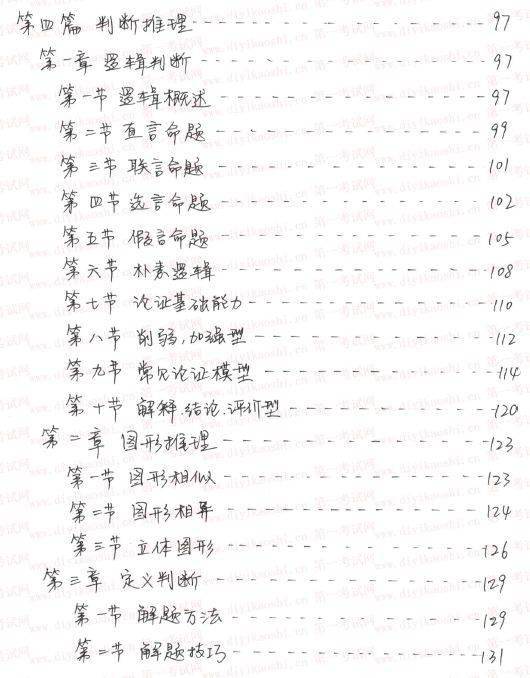 第四篇 判断推理 ---------------- 97
第一章 逻辑判断 ---------------- 97
第一节 逻辑概述 ---------------- 97
第二节 直言命题 ---------------- 99
第三节 联言命题 ---------------- 101
第四节 选言命题 ---------------- 102
第五节 假言命题 ---------------- 105
第六节 朴素逻辑 ---------------- 108
第七节 论证基础能力 ---------------- 110
第八节 削弱,加强型 ---------------- 112
第九节 常见论证模型 ---------------- 114
第十节 解释,结论,评价型 ---------------- 120
第二章 图形推理 ---------------- 123
第一节 图形相似 ---------------- 123
第二节 图形相异 ---------------- 124
第三节 立体图形 ---------------- 126
第三章 定义判断 ---------------- 129
第一节 解题方法 ---------------- 129
第二节 解题技巧 ---------------- 131
第一考试网 www.diyikaoshi.cn